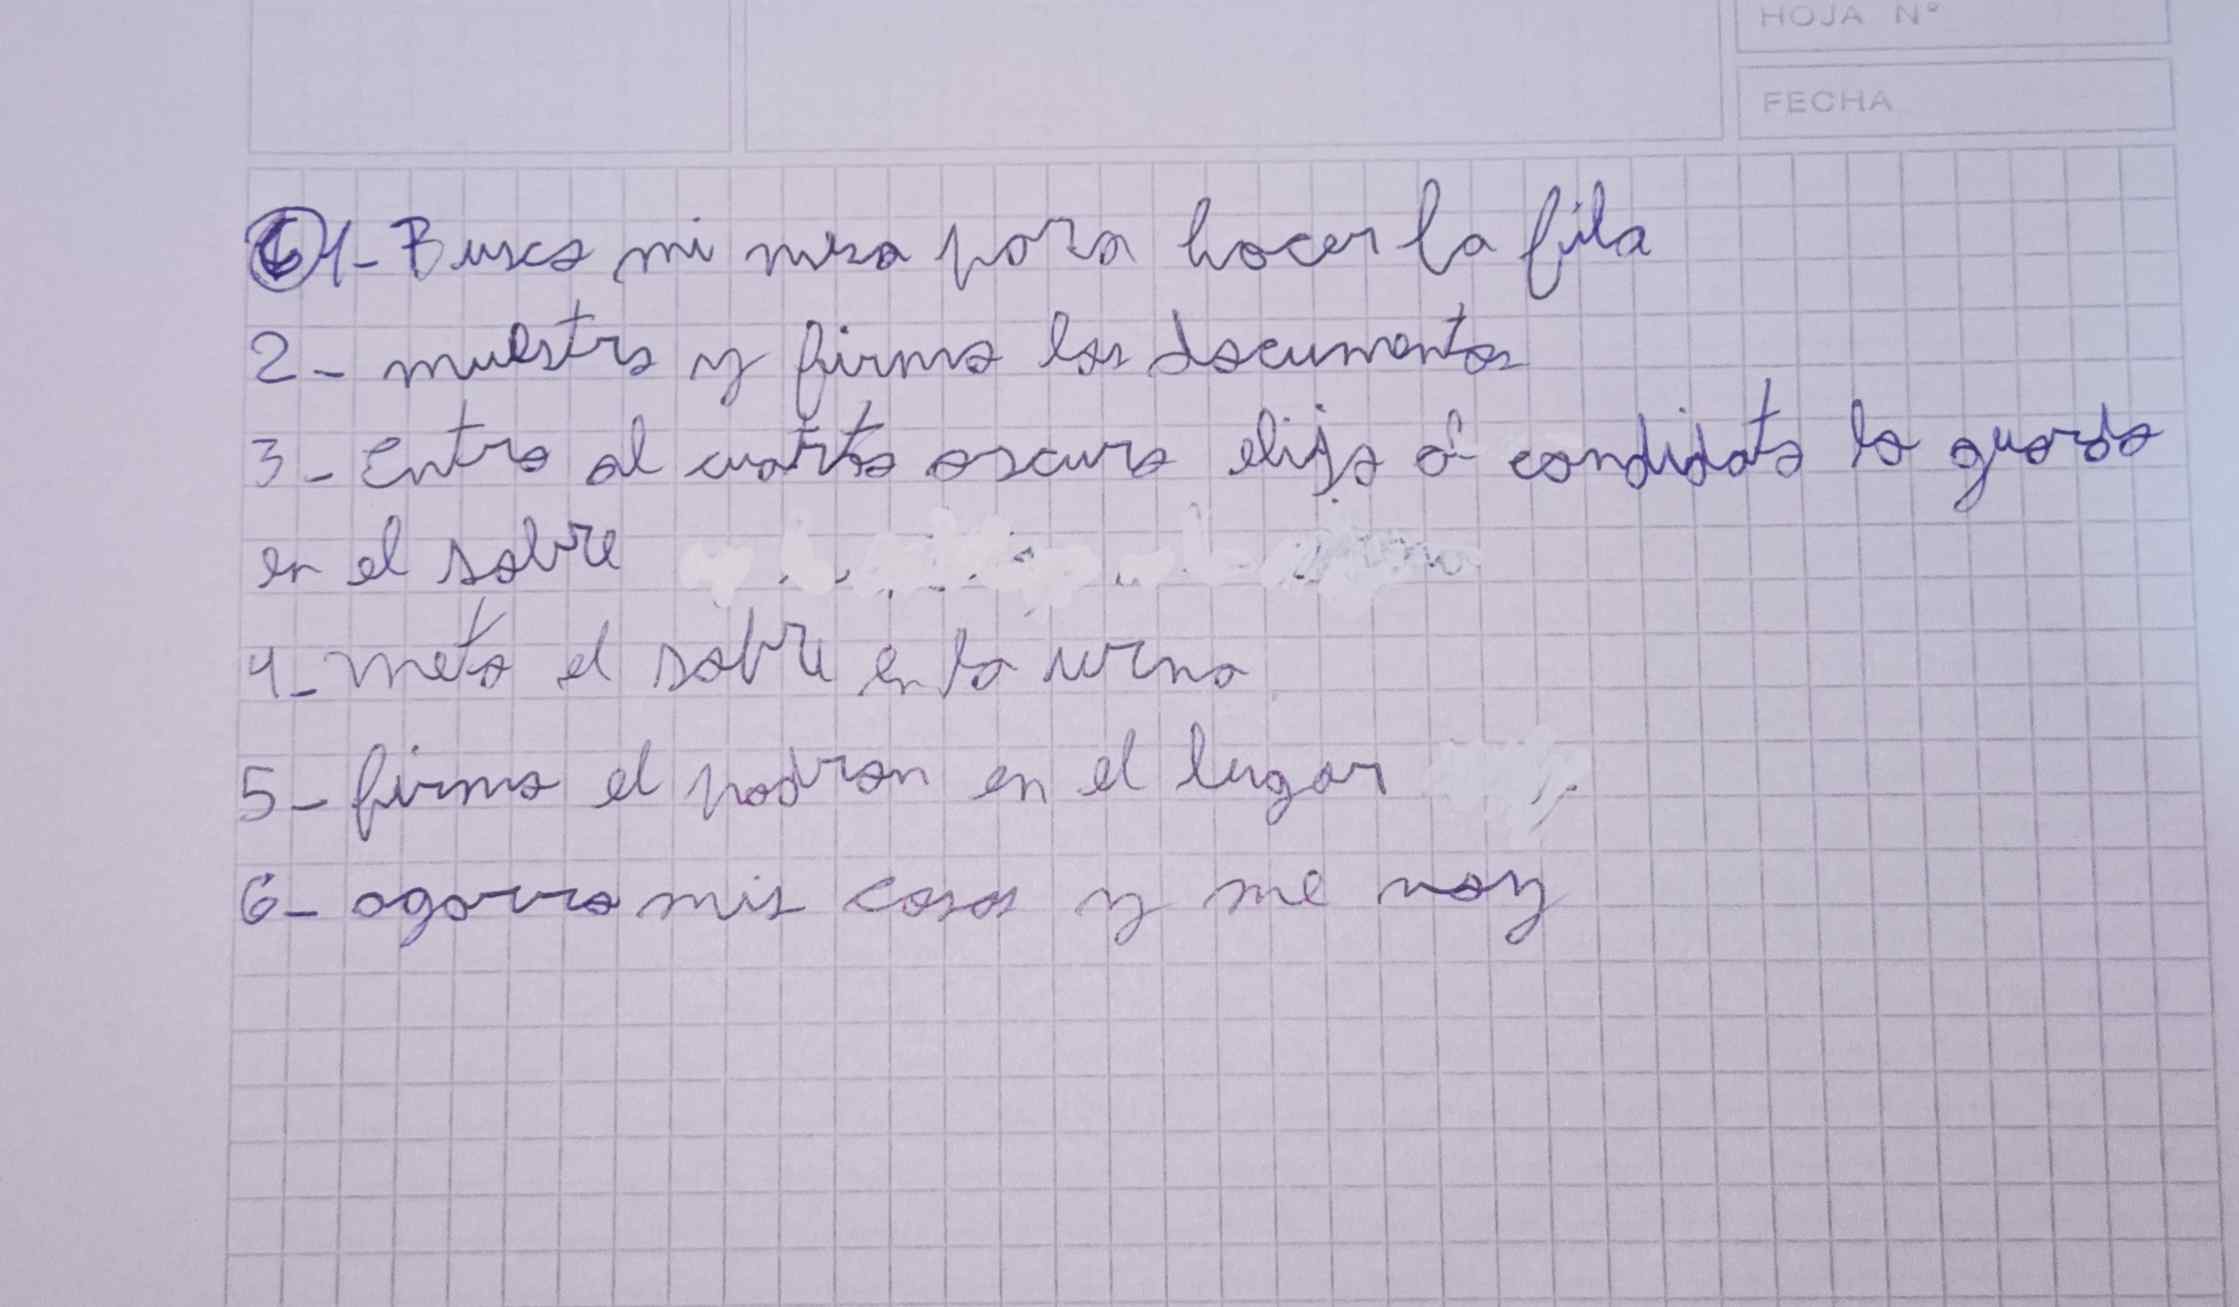 HOJA N°
FECHA
1- Busco mi mesa para hacer la fila
2- muestro y firmo los documentos
3- Entro al cuarto oscuro elijo al candidato lo guardo
en el sobre
4- meto el sobre en la urna
5- firmo el padron en el lugar
6- agarro mis cosas y me voy